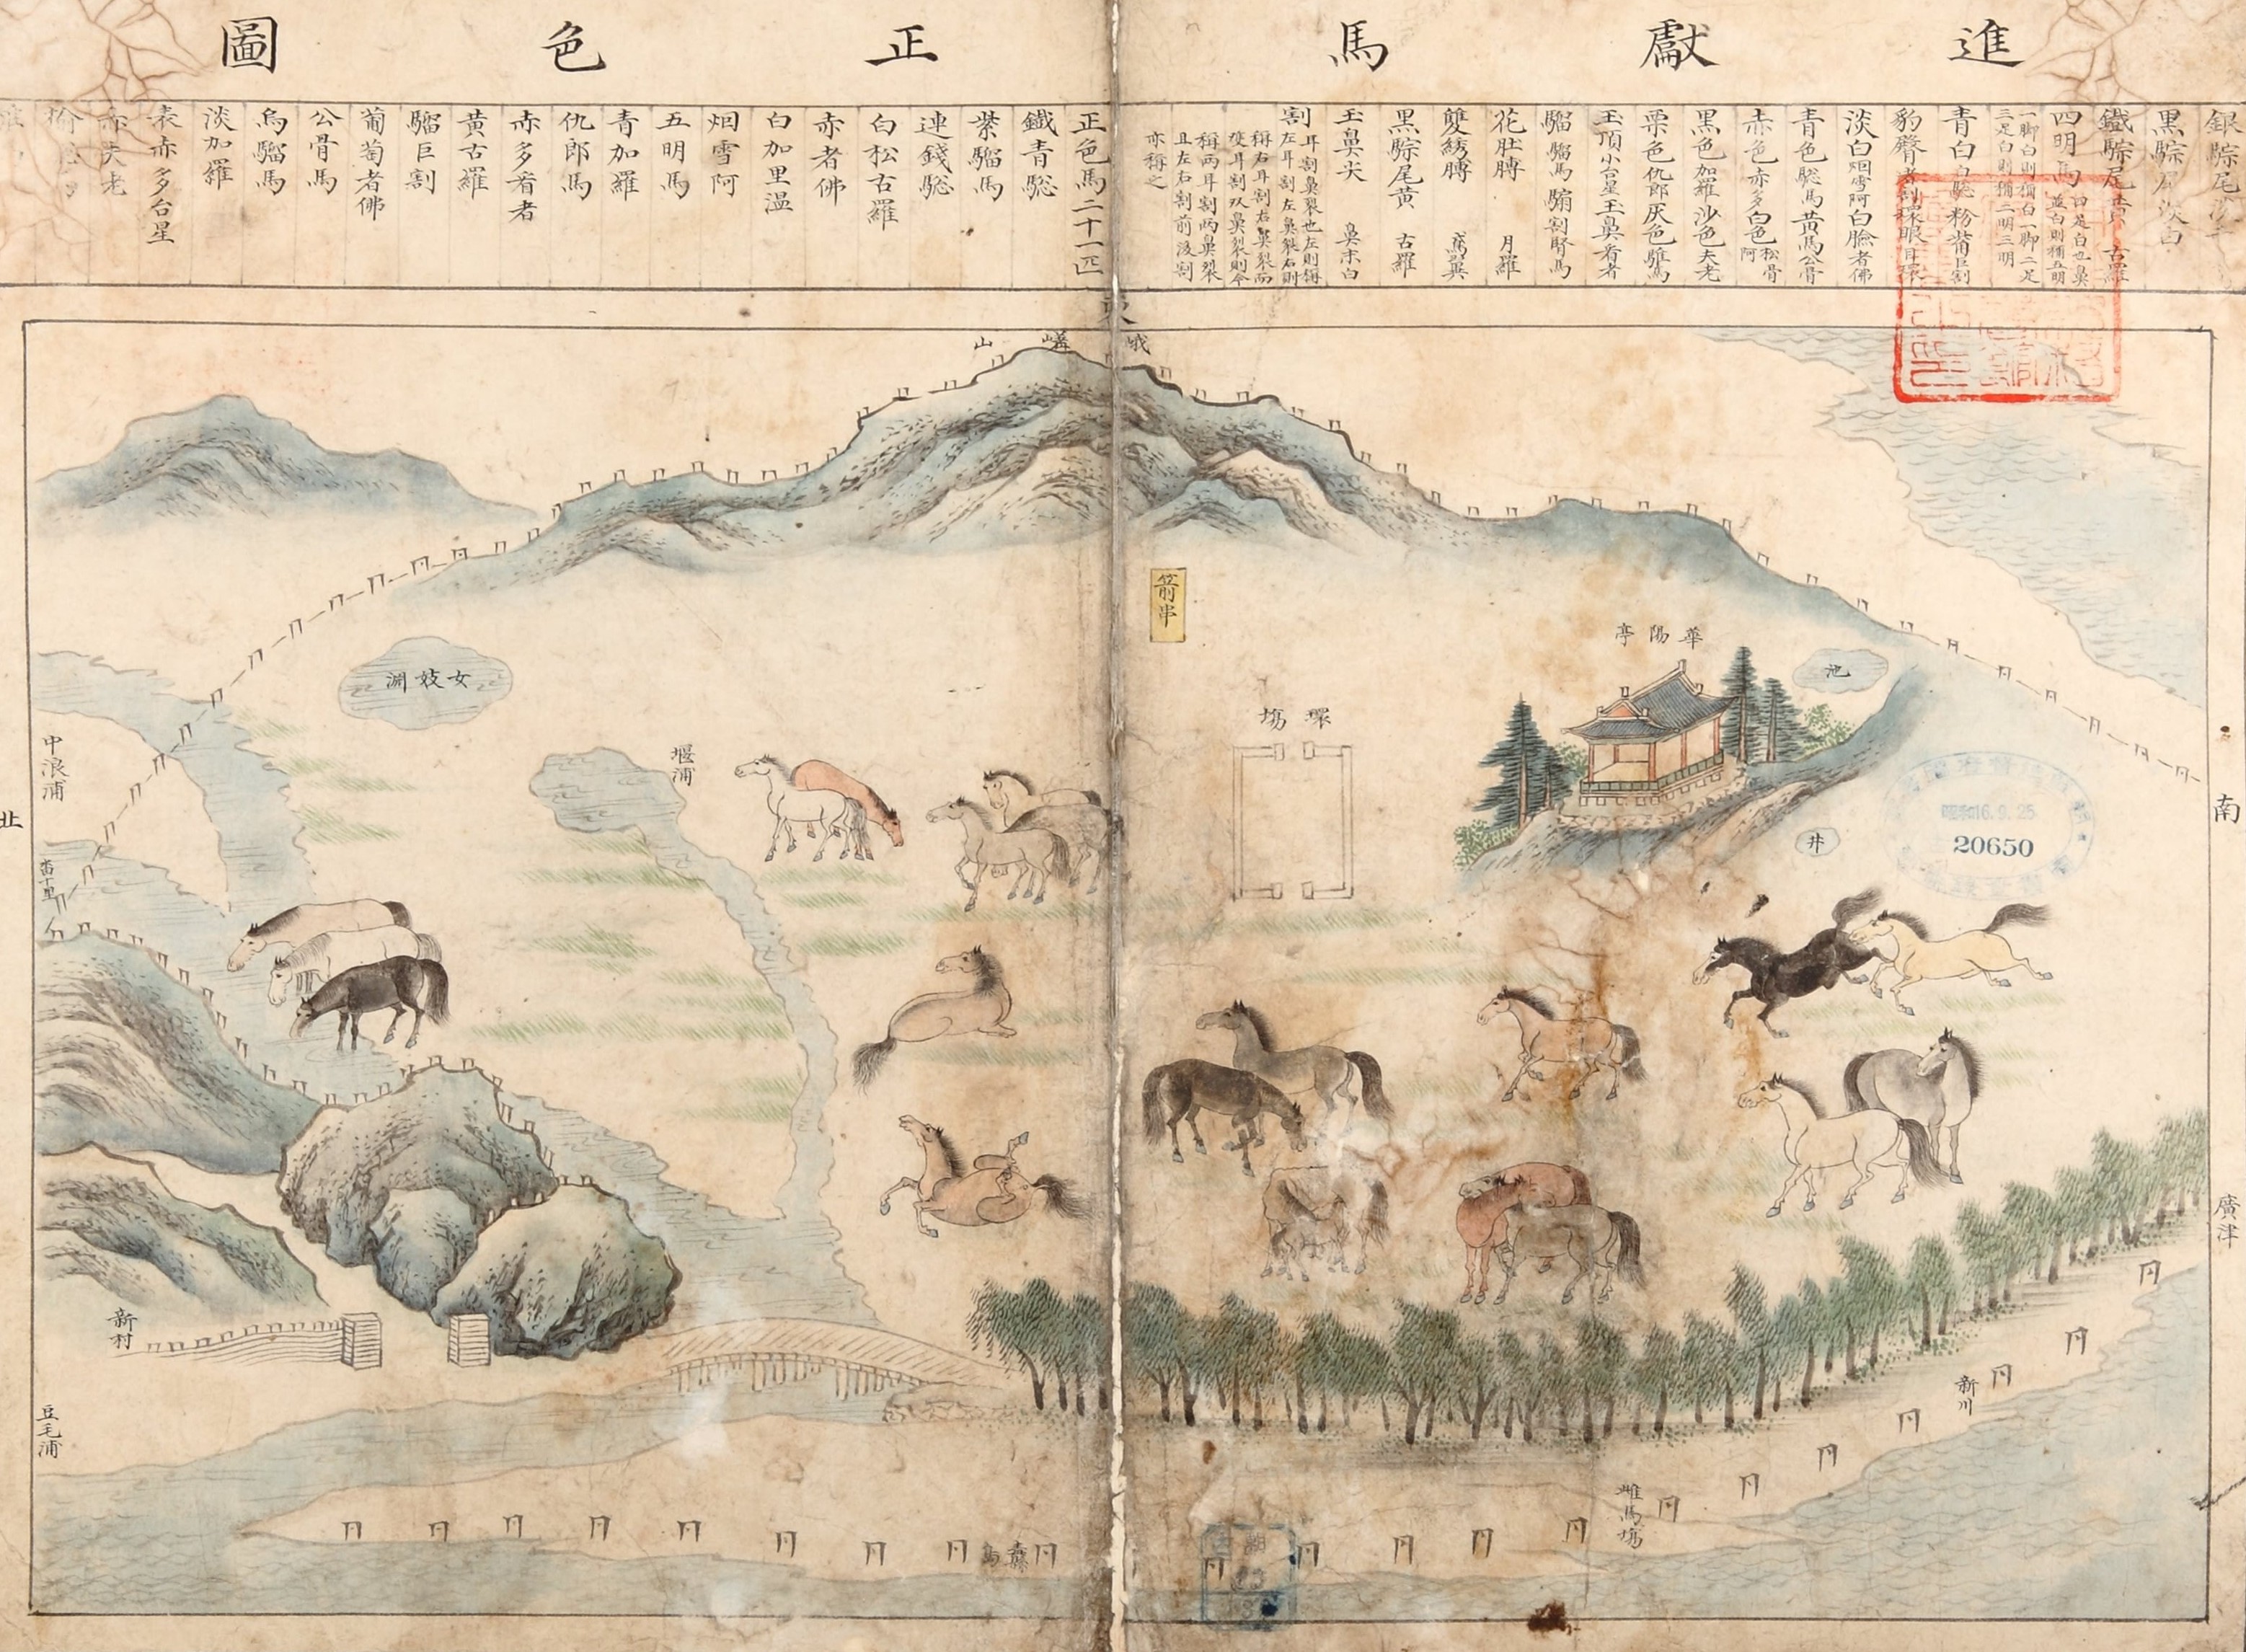 進獻馬正色圖
銀騣尾
黑騣尾淡白
鐵騣尾黃 古羅
四明馬 四足白也鼻並白則稱五明
一脚白則稱白一脚二足三足白則稱二明三明
青白白驄粉觜巨割
豹臀者割環眼耳環
淡白烟雪阿白臉者佛
青色驄馬黃馬公骨
赤色赤多白色松骨阿
黑色加羅沙色夫老
栗色仇郎灰色騅馬
玉頂小台星玉鼻看者
騮騮馬騧割腎馬
花肚膊 月羅
雙綉膊
黑騣尾黃 古羅
玉鼻尖 鼻末白
割 耳割鼻裂也左則稱左耳割左鼻裂右則
稱右耳割右鼻裂而雙耳割双鼻裂則
稱兩耳割兩鼻裂且左右割前後割
亦稱之
正色馬二十一匹
鐵青驄
紫騮馬
連錢驄
白松古羅
赤者佛
白加里溫
烟雪阿
五明馬
青加羅
仇郎馬
赤多看者
黃古羅
騮巨割
葡萄者佛
公骨馬
烏騮馬
淡加羅
表赤多台星
赤夫老
東
峨嵯山
箭串
華陽亭
池
女妓淵
環塲
堰浦
中浪浦
北
南
井
16.9.25
20650
廣津
新村
新川
豆毛浦
雌馬塲